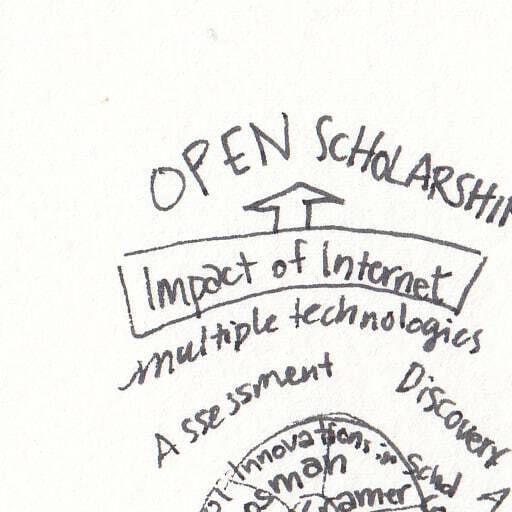 OPEN SCHOLARSHIP
Impact of Internet
multiple technologies
Assessment
Discovery
Innovations in